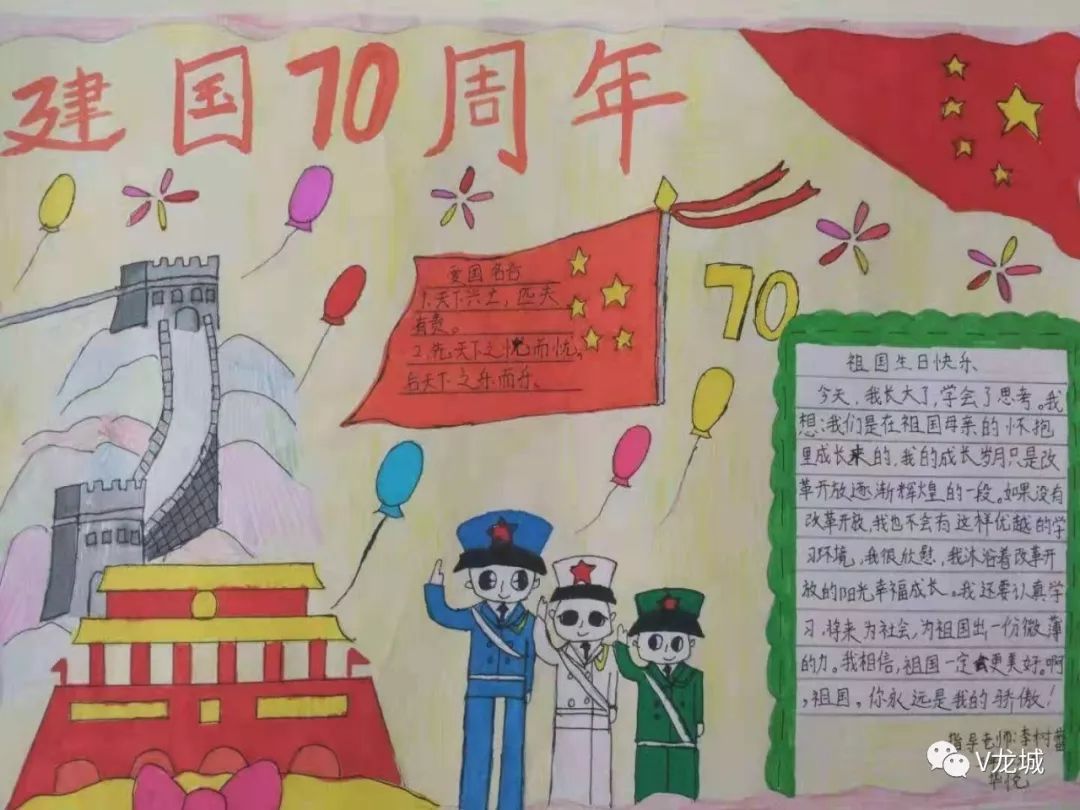 建国70周年
爱国名言
1.天下兴亡，匹夫
有责。
2.先天下之忧而忧，
后天下之乐而乐、
70
祖国生日快乐、
今天，我长大了，学会了思考。我
想：我们是在祖国母亲的怀抱
里成长来的，我的成长岁月只是改
革开放逐渐辉煌的一段。如果没有
改革开放，我也不会有这样优越的学
习环境，我很欣慰，我沐浴着改革开
放的阳光幸福成长。我还要认真学
习，将来为社会，为祖国出一份微薄
的力。我相信，祖国一定会更美好。啊
，祖国，你永远是我的骄傲！
指导老师：李树
V龙城